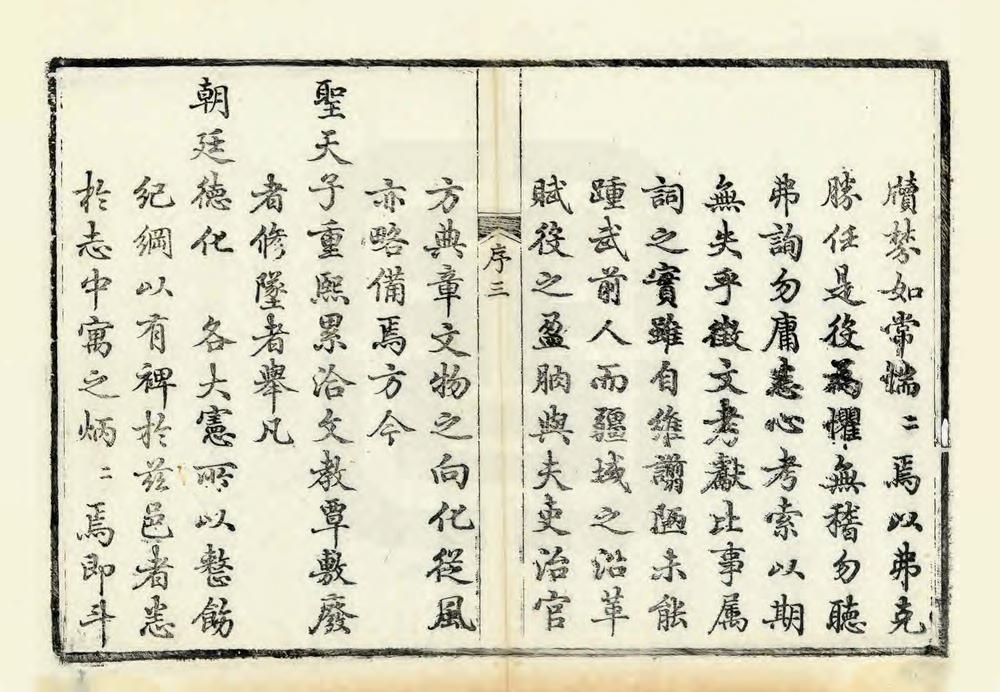 牘棼如常惴〻焉以弗克
勝任是役為懼無稽勿聽
弗詢勿庸悉心考索以期
無失乎徵文考獻比事属
詞之實雖自維謭陋未能
踵武前人而疆域之沿革
賦役之盈朒與夫吏治官
序三
方典章文物之向化從風
亦略備焉方今
聖天子重熙累洽文教覃敷廢
者修墜者舉凡
朝廷德化 各大憲所以整飭
紀綱以有裨於兹邑者悉
於志中寓之炳〻焉即斗